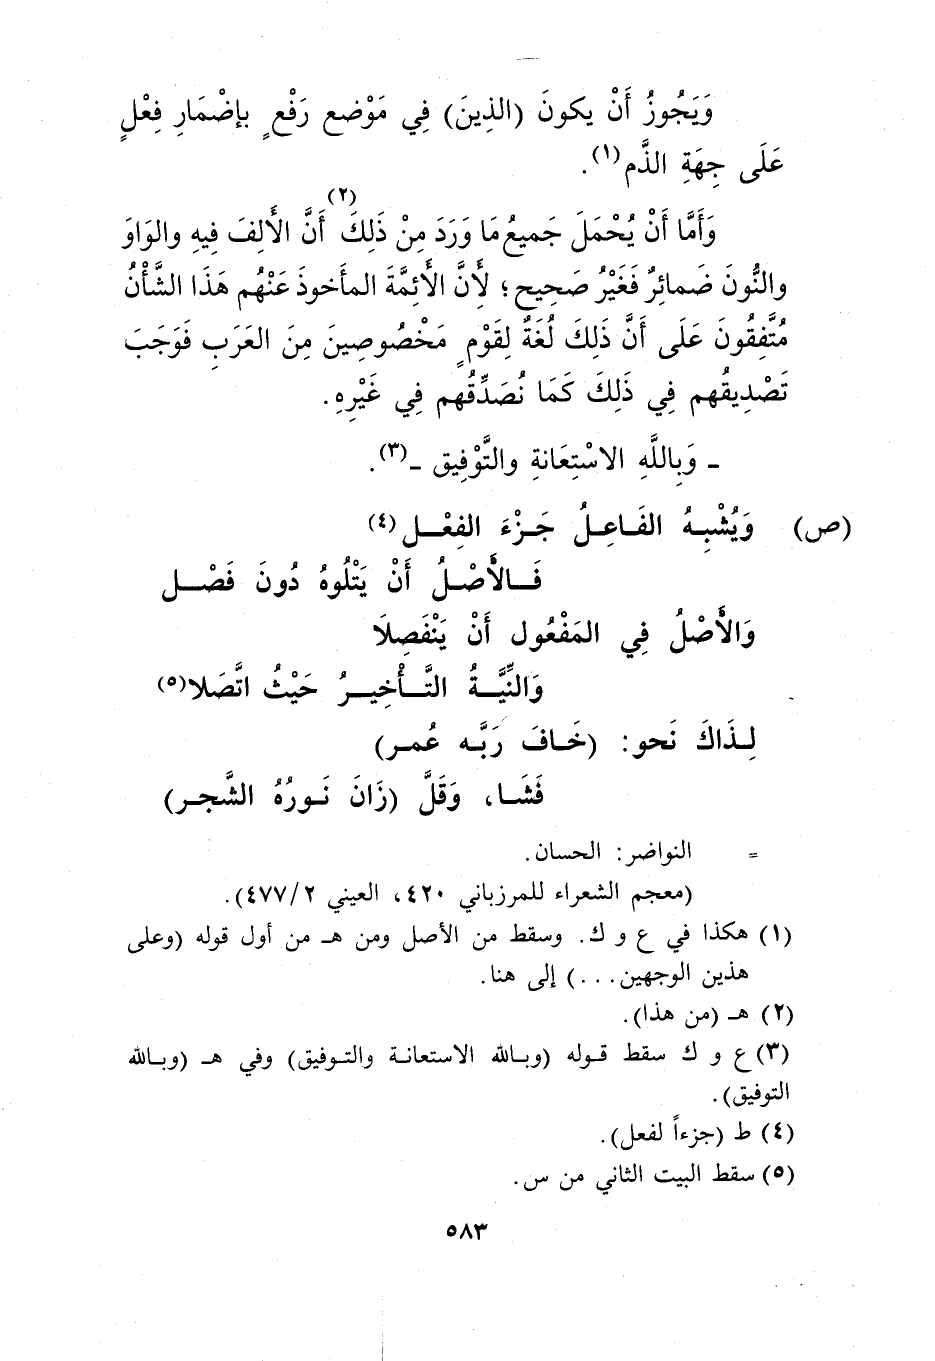 وَيَجُوزُ أَنْ يكونَ (الذِينَ) فِي مَوْضعِ رَفْعٍ بإضْمَارِ فِعْلٍ
عَلَى جِهَةِ الذَّم(١).
وَأَمَّا أَنْ يُحْمَلَ جَميعُ مَا وَرَدَ مِنْ ذَلِكَ(٢) أَنَّ الأَلِفَ فِيهِ والوَاوَ
والنُّونَ ضَمائِرُ فَغَيْرُ صَحِيحٍ؛ لِأَنَّ الأَئِمَّةَ المأخوذَ عَنْهُم هَذَا الشَّأْنُ
مُتَّفِقُونَ عَلَى أَنَّ ذَلِكَ لُغَةٌ لِقَوْمٍ مَخْصُوصِينَ مِنَ العَرَبِ فَوَجَبَ
تَصْدِيقُهم فِي ذَلِكَ كَمَا نُصَدِّقُهم فِي غَيْرِهِ.
ـ وَبِاللَّهِ الاسْتِعَانَةِ والتَّوْفِيق ـ(٣).
(ص) وَيُشْبِهُ الفَاعِلُ جَزْءَ الفِعْلِ(٤)
فَالأَصْلُ أَنْ يَتْلُوهُ دُونَ فَصْلِ
وَالأَصْلُ فِي المَفْعُولِ أَنْ يَنْفَصِلَا
وَالنِّيَّةُ التَّأْخِيرُ حَيْثُ اتَّصَلا(٥)
لِذَاكَ نَحو: (خَافَ رَبَّه عُمر)
فَشَا، وَقَلَّ (زَانَ نَورُهُ الشَّجر)
= النواضر: الحسان.
(معجم الشعراء للمرزباني ٤٢٠، العيني ٤٧٧/٢).
(١) هكذا في ع و ك. وسقط من الأصل ومن هـ من أول قوله (وعلى
هذين الوجهين...) إلى هنا.
(٢) هـ (من هذا).
(٣) ع و ك سقط قوله (وبالله الاستعانة والتوفيق) وفي هـ (وبالله
التوفيق).
(٤) ط (جزءاً لفعل).
(٥) سقط البيت الثاني من س.
٥٨٣